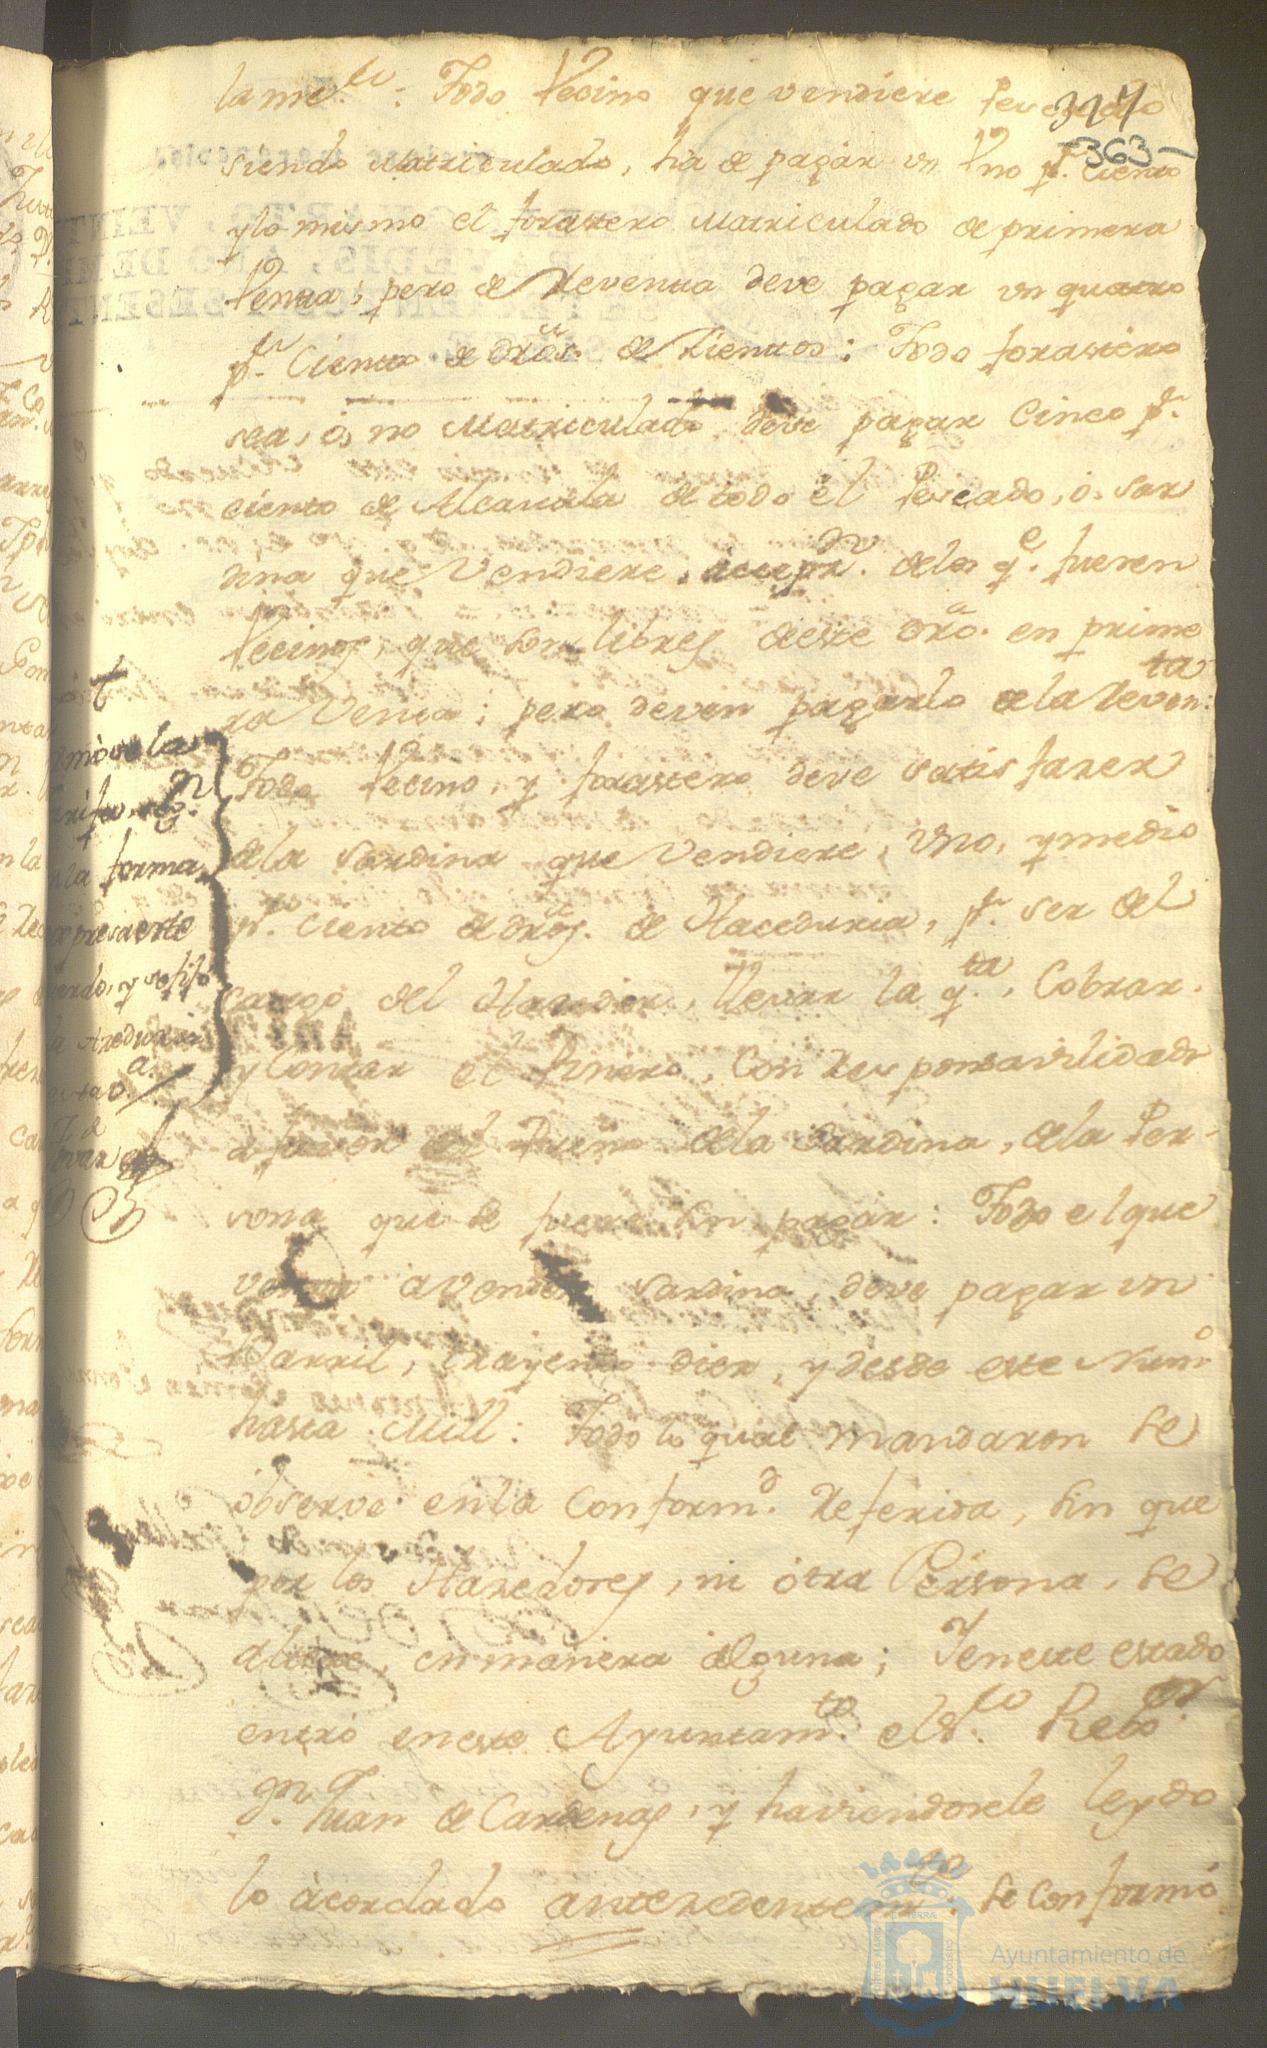 347
363
lamte: Todo Vecino que vendiere Pescado
siendo Matriculado, ha de pagar un Vno pr. ciento
ylo mismo el forastero Matriculado de primera
Venta; pero de Reventa deve pagar un quatro
pr. Ciento de dros. de Cientos: Todo forastero
sea, ó, no Matriculado deve pagar Cinco pr.
ciento de Alcavala de todo el Pescado, ó, sar
dina que Vendiere, decepn. delos qe. fueren
Vecinos, que son libres deeste dro. en prime
ra Venta; pero deven pagarlo dela Reventa:
Todo Vecino, y forastero deve satisfazer
dela Sardina que Vendiere, Vno, y medio
pr. ciento de dros. de Haceduria, pr. ser del
cargo del Hazedor, llevar la qta., Cobrar,
y Contar el Dinero, Con Responsavilidad
a favor del Dueño dela Sardina, dela Per-
sona que se fuere sin pagar: Todo el que
venga a Vender Sardina, deve pagar un
Barril, trayendo diez, y desde este Numo
hasta Mill: Todo lo qual mandaron se
observe enla Conformd. Referida, sin que
por los Hazedores, ni otra Persona, se
altere, en manera alguna; Y eneste estado
entró eneste Ayuntamto. el sr. Rexor
Dn. Juan de Cardenas, y haviendosele leydo
lo acordado antezedentemte. se Conformó
la forma
Ayuntamiento de
HUELVA